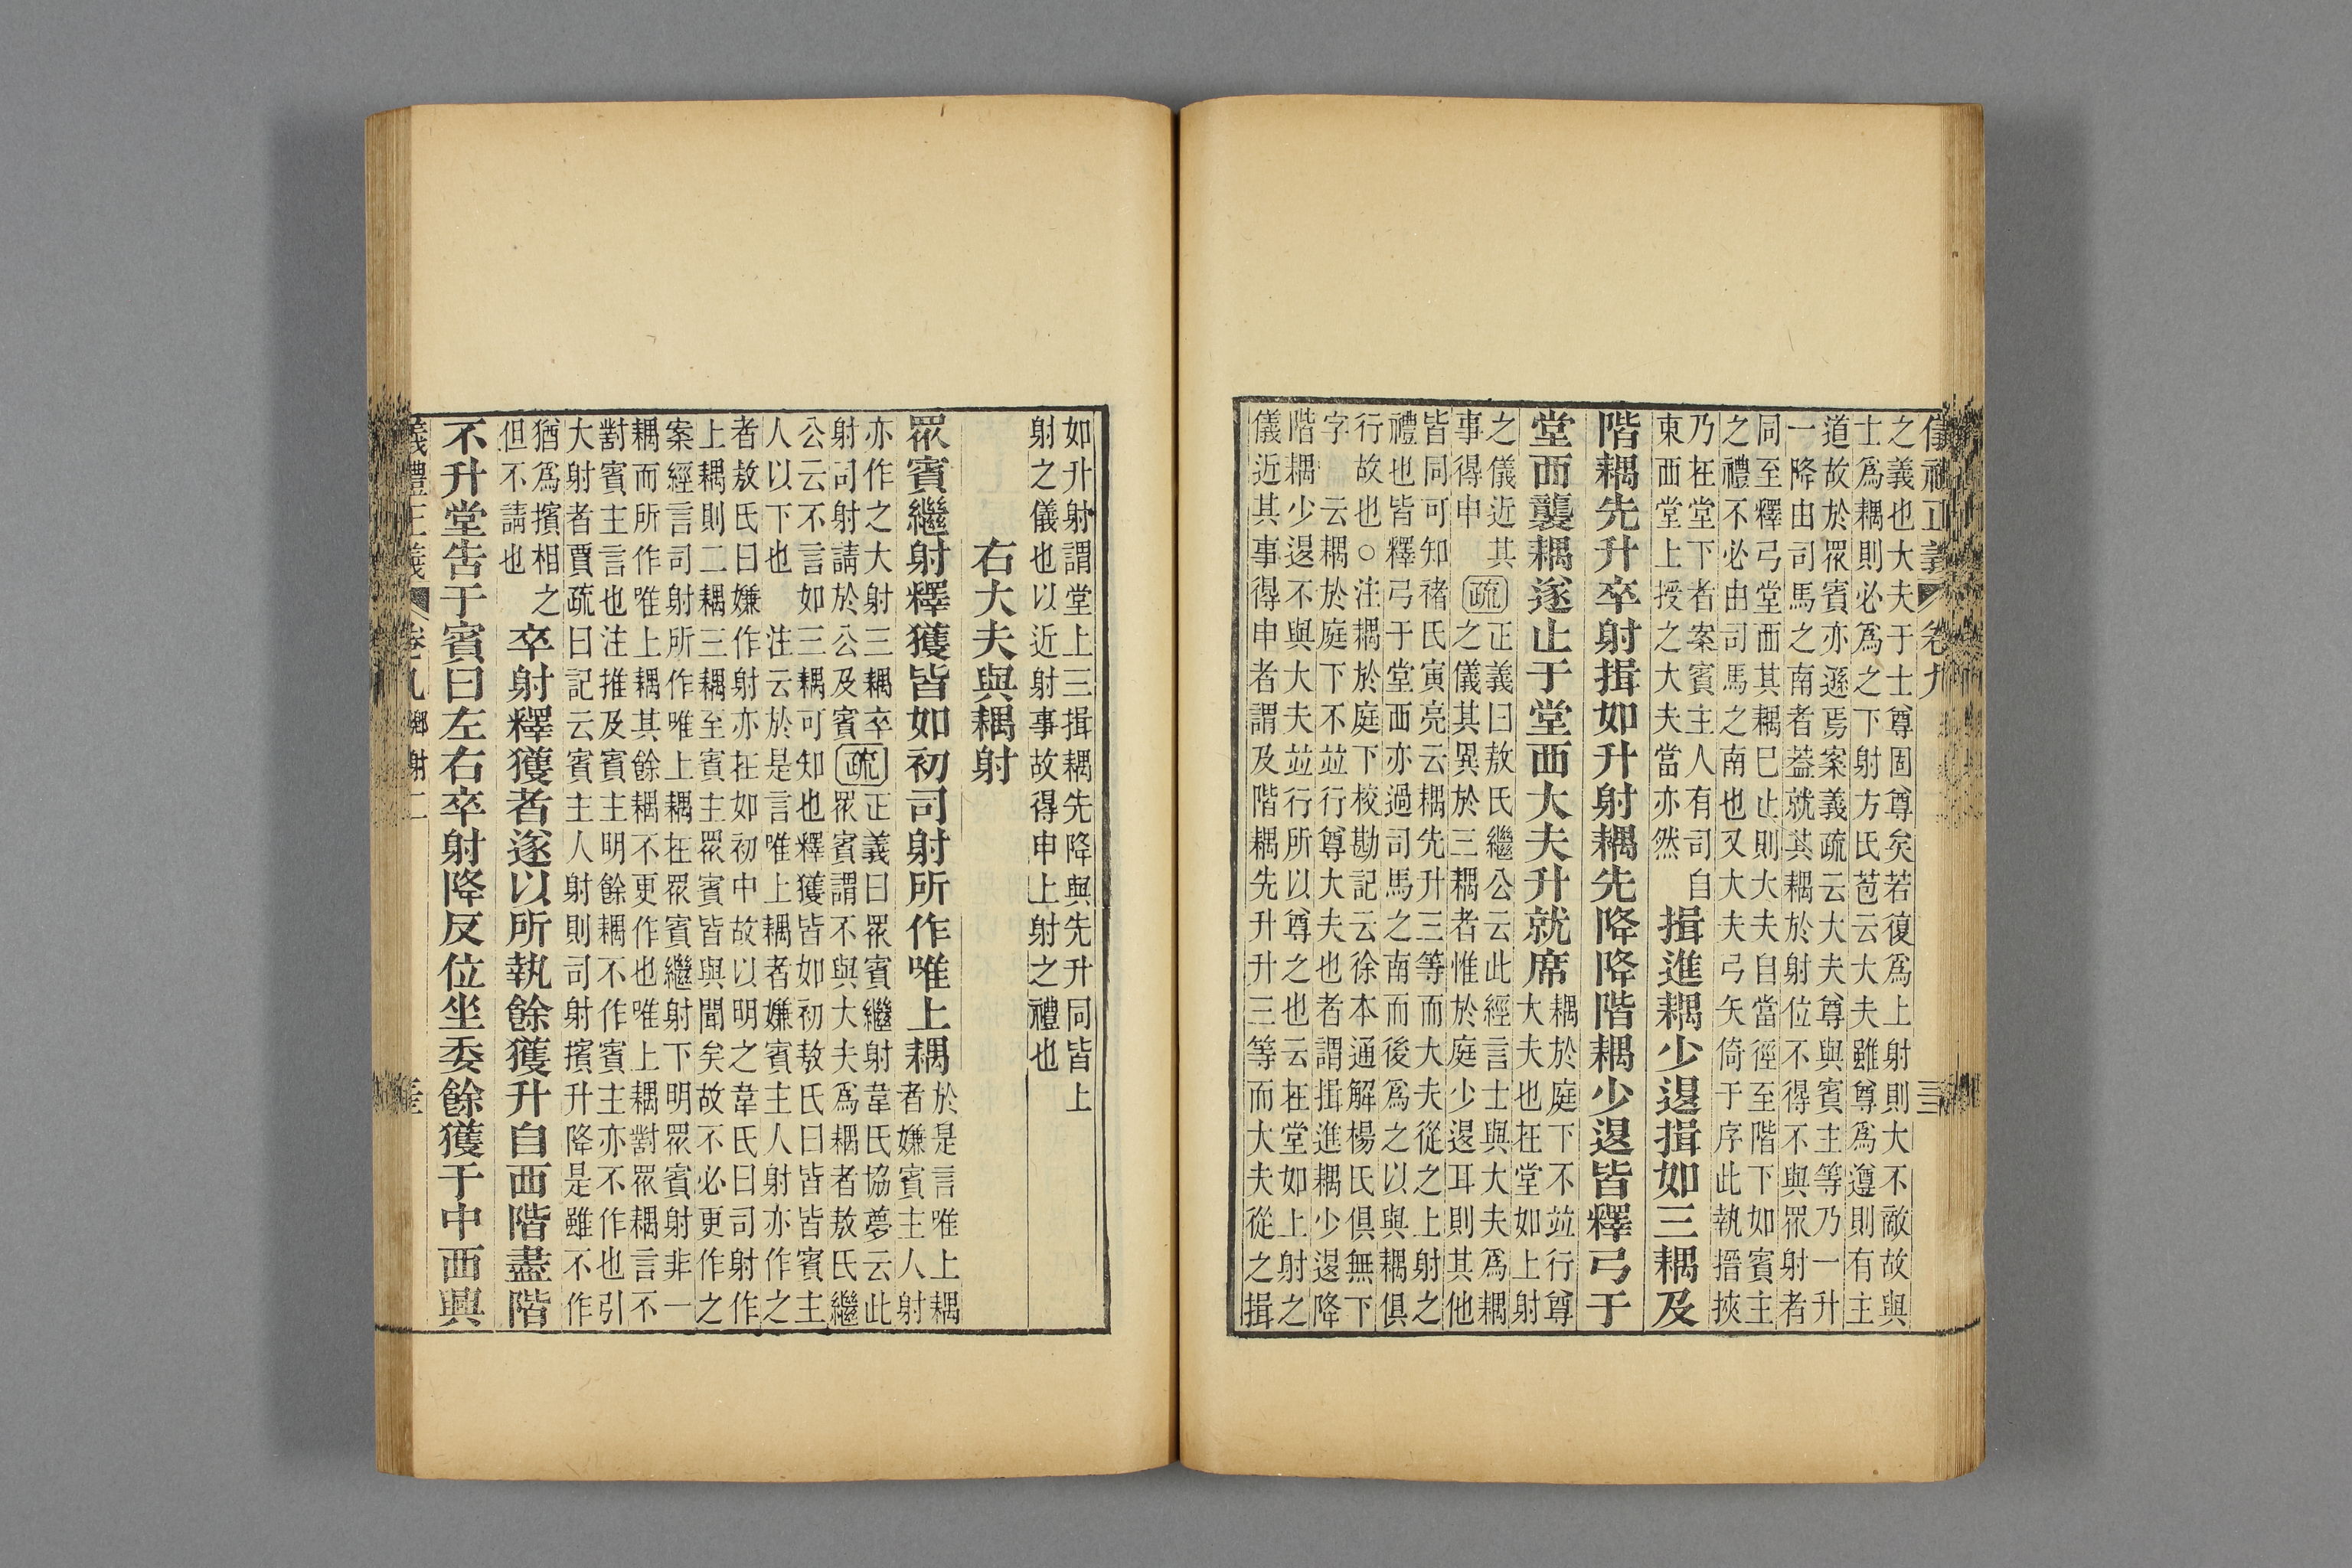 儀禮正義 卷九
之義也大夫于士尊固尊矣若復爲上射則大不敵故與
士爲耦則必爲之下射方氏苞云大夫雖尊爲遵則有主
道故於眾賓亦遜焉案義疏云大夫尊與賓主等乃一升
一降由司馬之南者葢就其耦於射位不得不與眾射者
同至釋弓堂西其耦巳止則大夫自當徑至階下如賓主
之禮不必由司馬之南也又大夫弓矢倚于序此執搢挾
乃在堂下者案賓主人有司自
東西堂上授之大夫當亦然
揖進耦少退揖如三耦及
階耦先升卒射揖如升射耦先降降階耦少退皆釋弓于
堂西襲耦遂止于堂西大夫升就席
耦於庭下不竝行尊
大夫也在堂如上射
之儀近其
事得申
疏正義曰敖氏繼公云此經言士與大夫爲耦
之儀其異於三耦者惟於庭少退耳則其他
皆同可知褚氏寅亮云耦先升三等而大夫從之上射之
禮也皆釋弓于堂西亦過司馬之南而後爲之以與耦俱
行故也○注耦於庭下校勘記云徐本通解楊氏俱無下
字云耦於庭下不竝行尊大夫也者謂揖進耦少退降
階耦少退不與大夫竝行所以尊之也云在堂如上射之
儀近其事得申者謂及階耦先升升三等而大夫從之揖
如升射謂堂上三揖耦先降與先升同皆上
射之儀也以近射事故得申上射之禮也
右大夫與耦射
眾賓繼射釋獲皆如初司射所作唯上耦
於是言唯上耦
者嫌賓主人射
亦作之大射三耦卒
射司射請於公及賓
疏正義曰眾賓繼射韋氏協夢云此
眾賓謂不與大夫爲耦者敖氏繼
公云不言如三耦可知也釋獲皆如初敖氏曰皆皆賓主
人以下也 注云於是言唯上耦者嫌賓主人射亦作之
者敖氏曰嫌作射亦在如初中故以明之韋氏曰司射作
上耦則二耦三耦至賓主眾賓皆與聞矣故不必更作之
案經言司射所作唯上耦在眾賓繼射下明眾賓射非一
耦而所作唯上耦其餘耦不更作也唯上耦對眾耦言不
對賓主言也注推及賓主明餘耦不作賓主亦不作也引
大射者賈疏曰記云賓主人射則司射擯升降是雖不作
猶爲擯相之
但不請也
卒射釋獲者遂以所執餘獲升自西階盡階
不升堂告于賓曰左右卒射降反位坐委餘獲于中西興